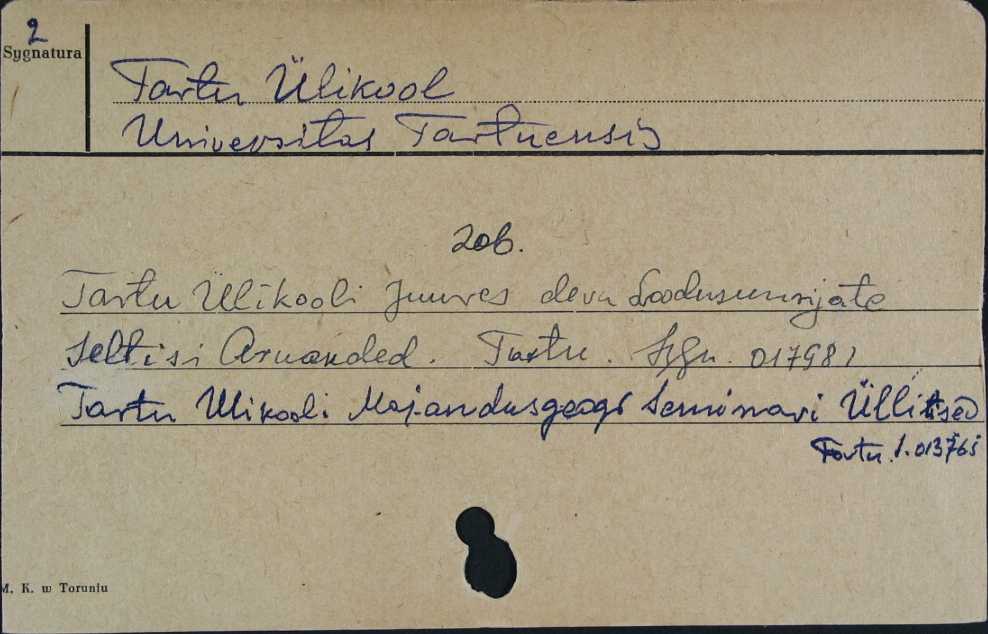 2
Sygnatura
Tartu Ülikool
Universitas Tartuensis
zob.
Tartu Ülikooli juures deva Loodusuurijate
Seltsi Aruanded. Tartu. Sygn. 017981
Tartu Ülikooli Majandusgeogr Seminari Üllitised
Tartu. S. 013765
M. K. w Toruniu